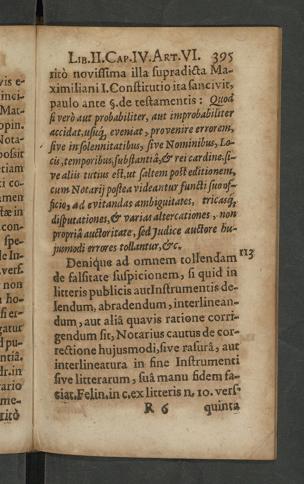 LIB.II.CAP.IV.ART.VI. 395
ritò novissima illa supradicta Ma-
ximiliani I. Constitutio ita sancivit,
paulo ante §. de testamentis: Quod
si verò aut probabiliter, aut improbabiliter
accidat, usúq; eveniat, provenire errorem,
sive in solennitatibus, sive Nominibus, Lo-
cis, temporibus, substantiâ, & rei cardine, si-
ve aliis tutius est, ut saltem post editionem,
cum Notarij postea videantur functi suo of-
ficio, ad evitandas ambiguitates, tricasq́;,
disputationes, & varias altercationes, non
propriâ auctoritate, sed judice auctore hu-
jusmodi errores tollantur, &c.
Deniq́ue ad omnem tollendam 113
de falsitate suspicionem, si quid in
litteris publicis aut Instrumentis de-
lendum, abradendum, interlinean-
dum, aut aliâ quavis ratione corri-
gendum sit, Notarius cautus de cor-
rectione hujusmodi, sive rasurâ, aut
interlineatura in fine Instrumenti
sive litterarum, suâ manu fidem fa-
ciat. Felin. in c. ex litteris n. 10. vers.
R 6 quinta
vis e-
inci-
Mat-
opin.
Nota-
possit
etiam
ti co-
tamen
tæ in
con-
spe-
le In-
.vers.
non
ho-
si er-
gatur
d pu-
ntiâ.
dr. in
rario
me-
ritò